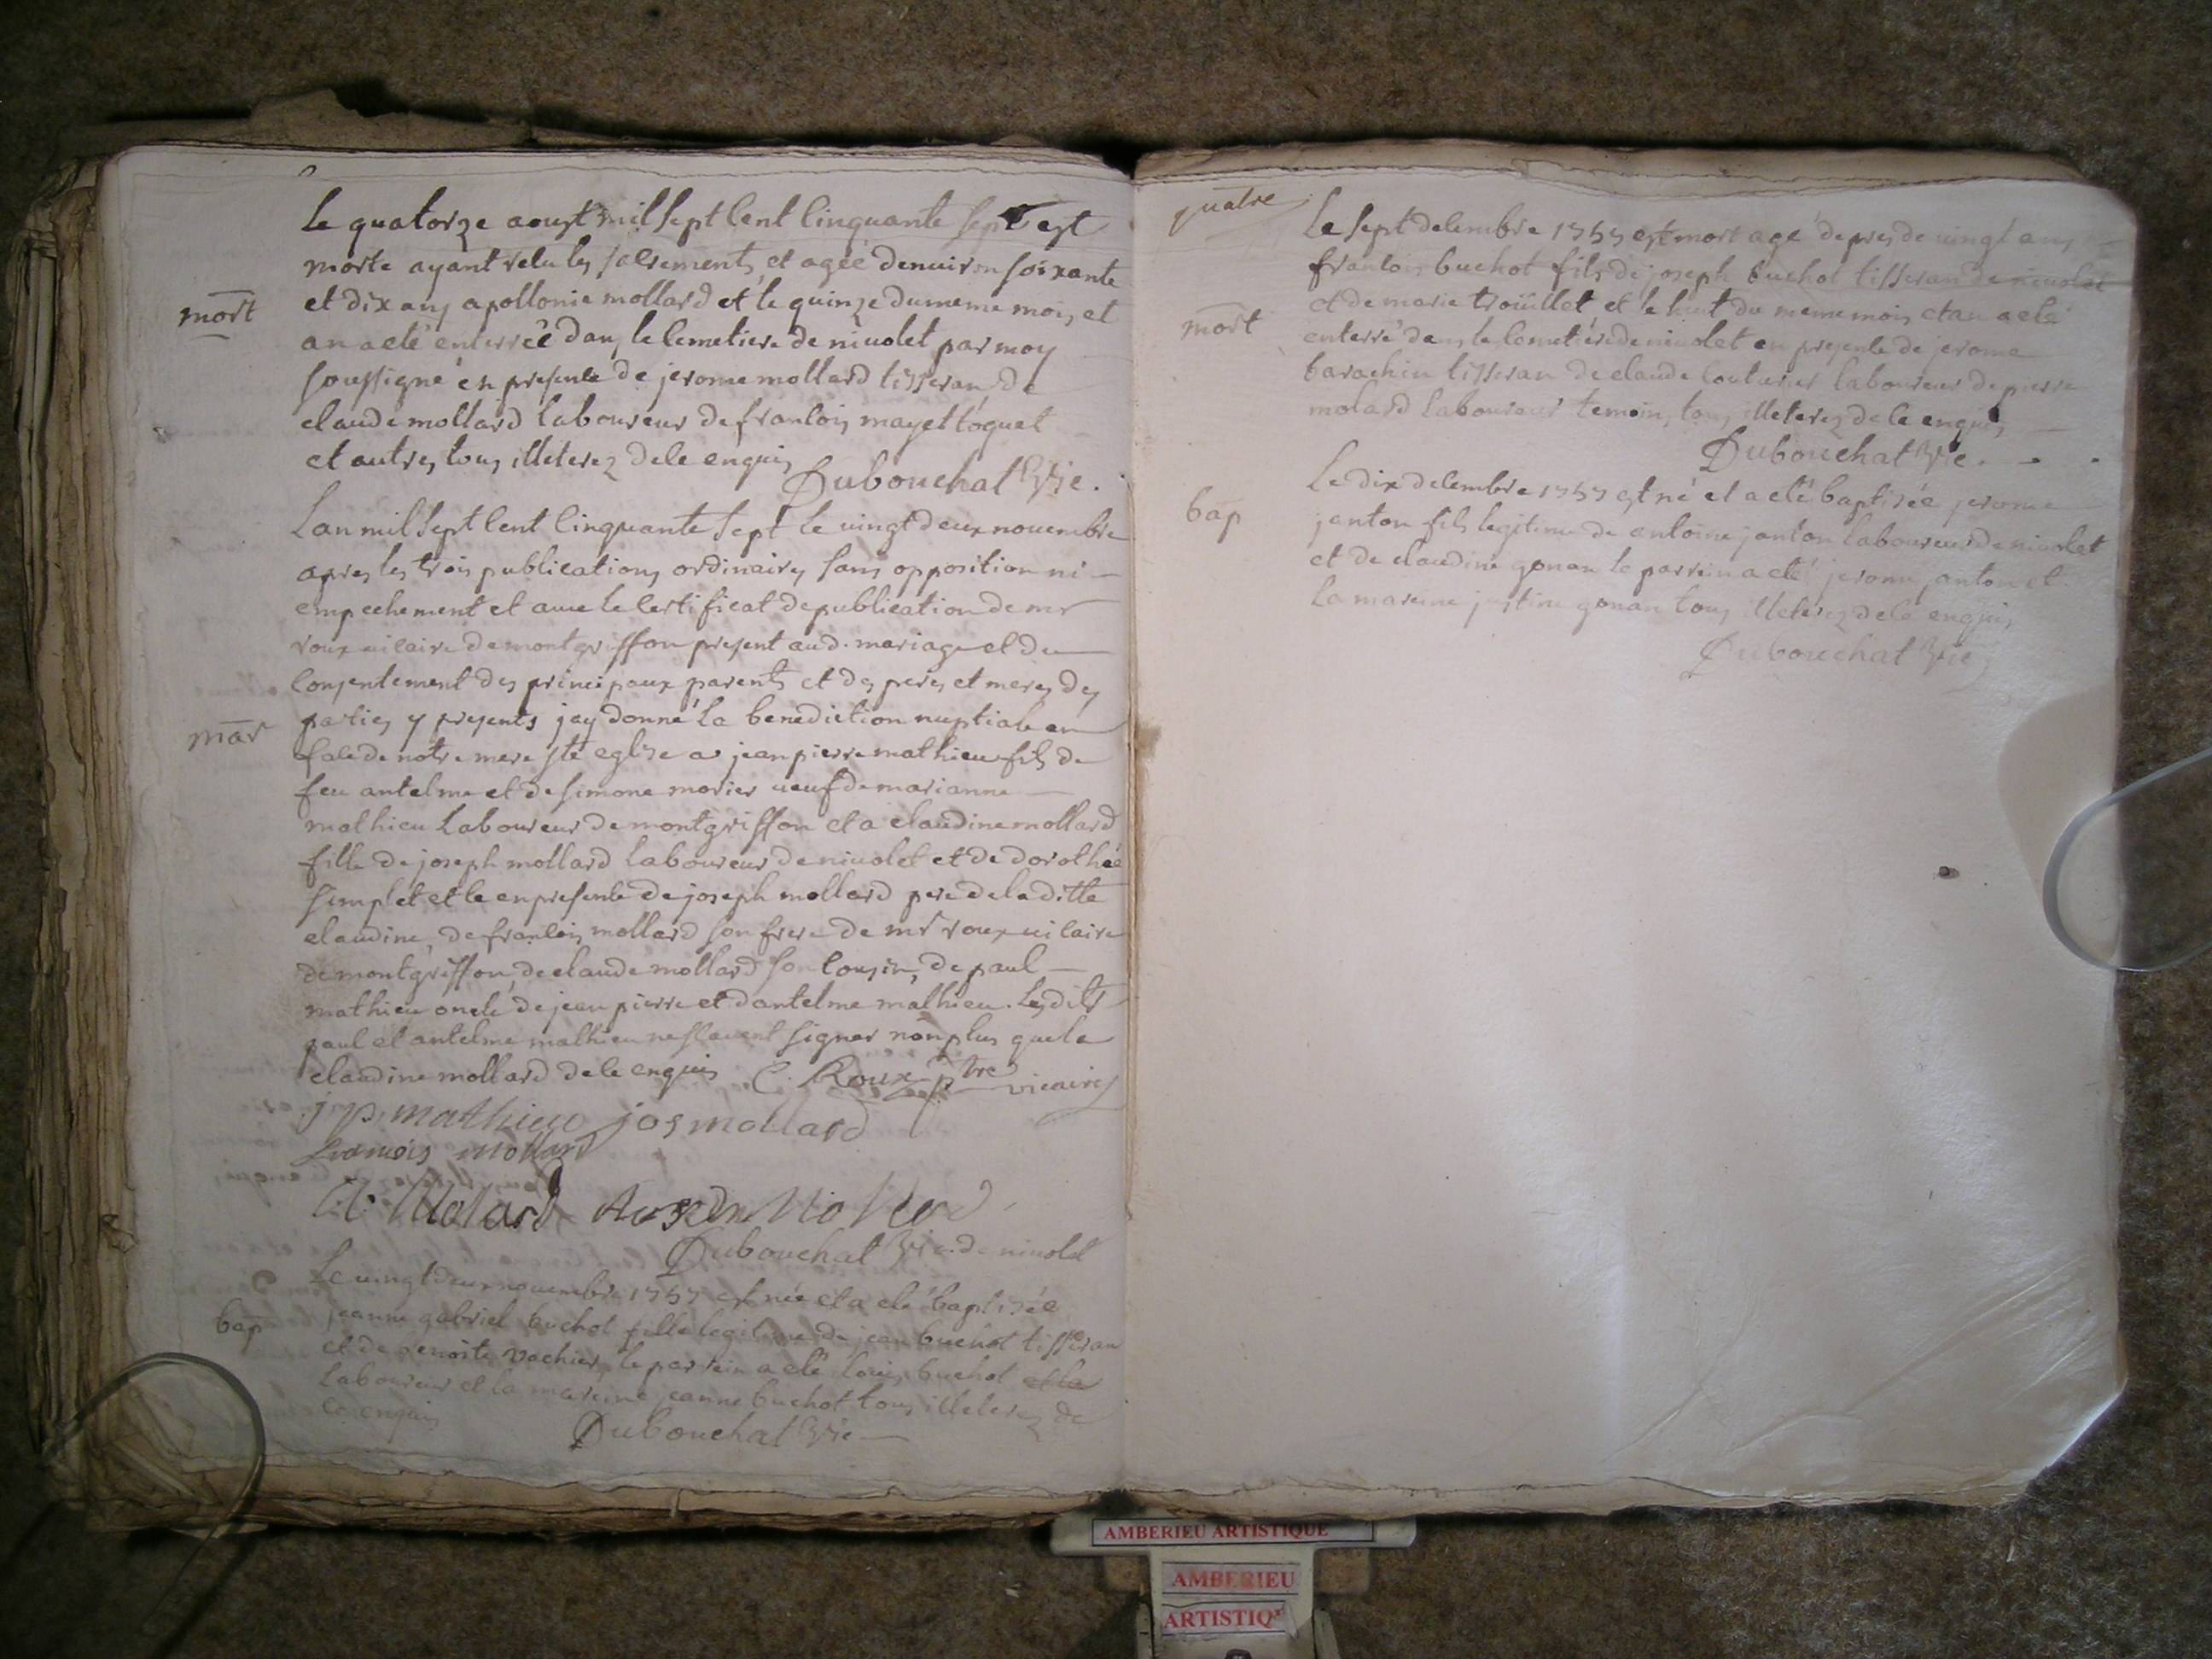 Le quatorze aoust mil sept cent cinquante sept est
morte ayant recu les sacrements et agée denuiron soixante
et dix ans apollonie mollard et le quinze du meme mois et
mort
an a eté enterrée dans le cemetiere de niuolet par moy
soussigné en presence de jerome mollard tisseran, de
claude mollard laboureur de francois mayet toquet
et autres tous illeterez de ce enquis
Dubouchat
Lan mil sept cent cinquante sept le uingt deux nouembre
apres les trois publications ordinaires sans opposition ni
empechement et auec le certificat de publication de mr
roux uicaire de montgriffon present aud. mariage et du
consentement des principaux parents et des peres et meres des
mar
parties y presents jay donné la benediction nuptiale en
face de notre mere ste eglise a jean pierre mathieu fils de
feu antelme et de simone morier ueuf de marianne
mathieu laboureur de montgriffon et a claudine mollard
fille de joseph mollard laboureur de niuolet et de dorothée
simplet et ce en presence de joseph mollard pere de la ditte
claudine, de francois mollard son frere de mr roux uicaire
de montgriffon, de claude mollard son cousin, de paul
mathieu oncle de jean pierre et dantelme mathieu. Les dits
paul et antelme mathieu ne scauent signer non plus que la
claudine mollard de ce enquis C. Roux ptre vicaire
j p mathieu jos mollard
francois mollard
Cl. Mollard
Dubouchat vic. de niuolet
Le uingt deux nouembre 1757 est née et a eté baptisée
bap
jeanne gabriel buchot fille legitime de jean buchot tisseran
et de benoite vachier, le parrein a eté louis buchot et la
laboureur et la mareine jeanne buchot tous illeterez de
ce enquis
Dubouchat vic
quatre
Le sept decembre 1757 est mort agé de pres de uingt ans
francois buchot fils de joseph buchot tisseran de niuolet
et de marie troüillet et le huit du meme mois et an a eté
mort
enterré dans le cemetiere de niuolet en presence de jerome
barachin tisseran de claude couturier laboureur de pierre
molard laboureur temoins, tous illeterez de ce enquis
Dubouchat vic.
Le dix decembre 1757 est né et a eté baptisée jerome
bap
janton fils legitime de antoine janton laboureur de niuolet
et de claudine gonan le parrein a eté jerome janton et
la mareine justine gonan tous illeterez de ce enquis
Dubouchat vic
AMBERIEU ARTISTIQUE
AMBERIEU
ARTISTIQ